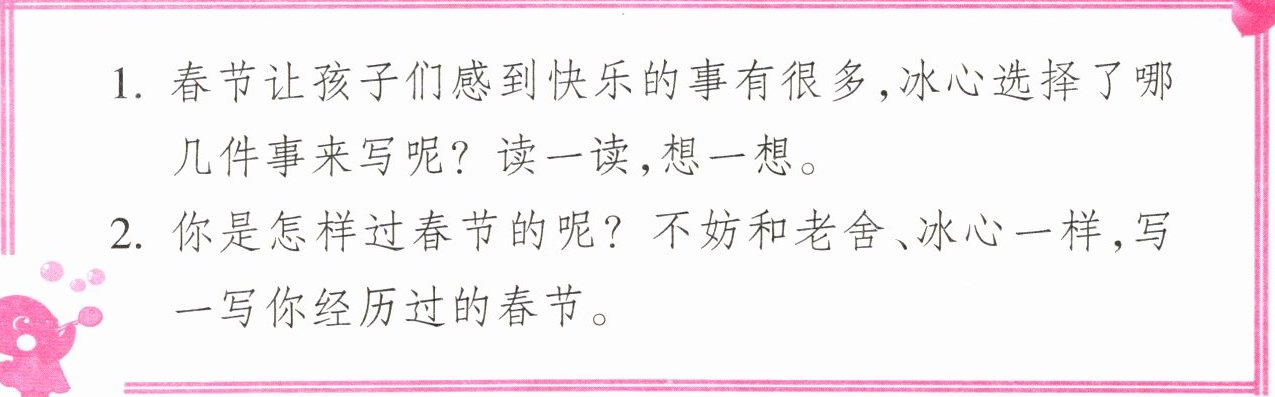 1. 春节让孩子们感到快乐的事有很多,冰心选择了哪
几件事来写呢? 读一读,想一想。
2. 你是怎样过春节的呢? 不妨和老舍、冰心一样,写
一写你经历过的春节。